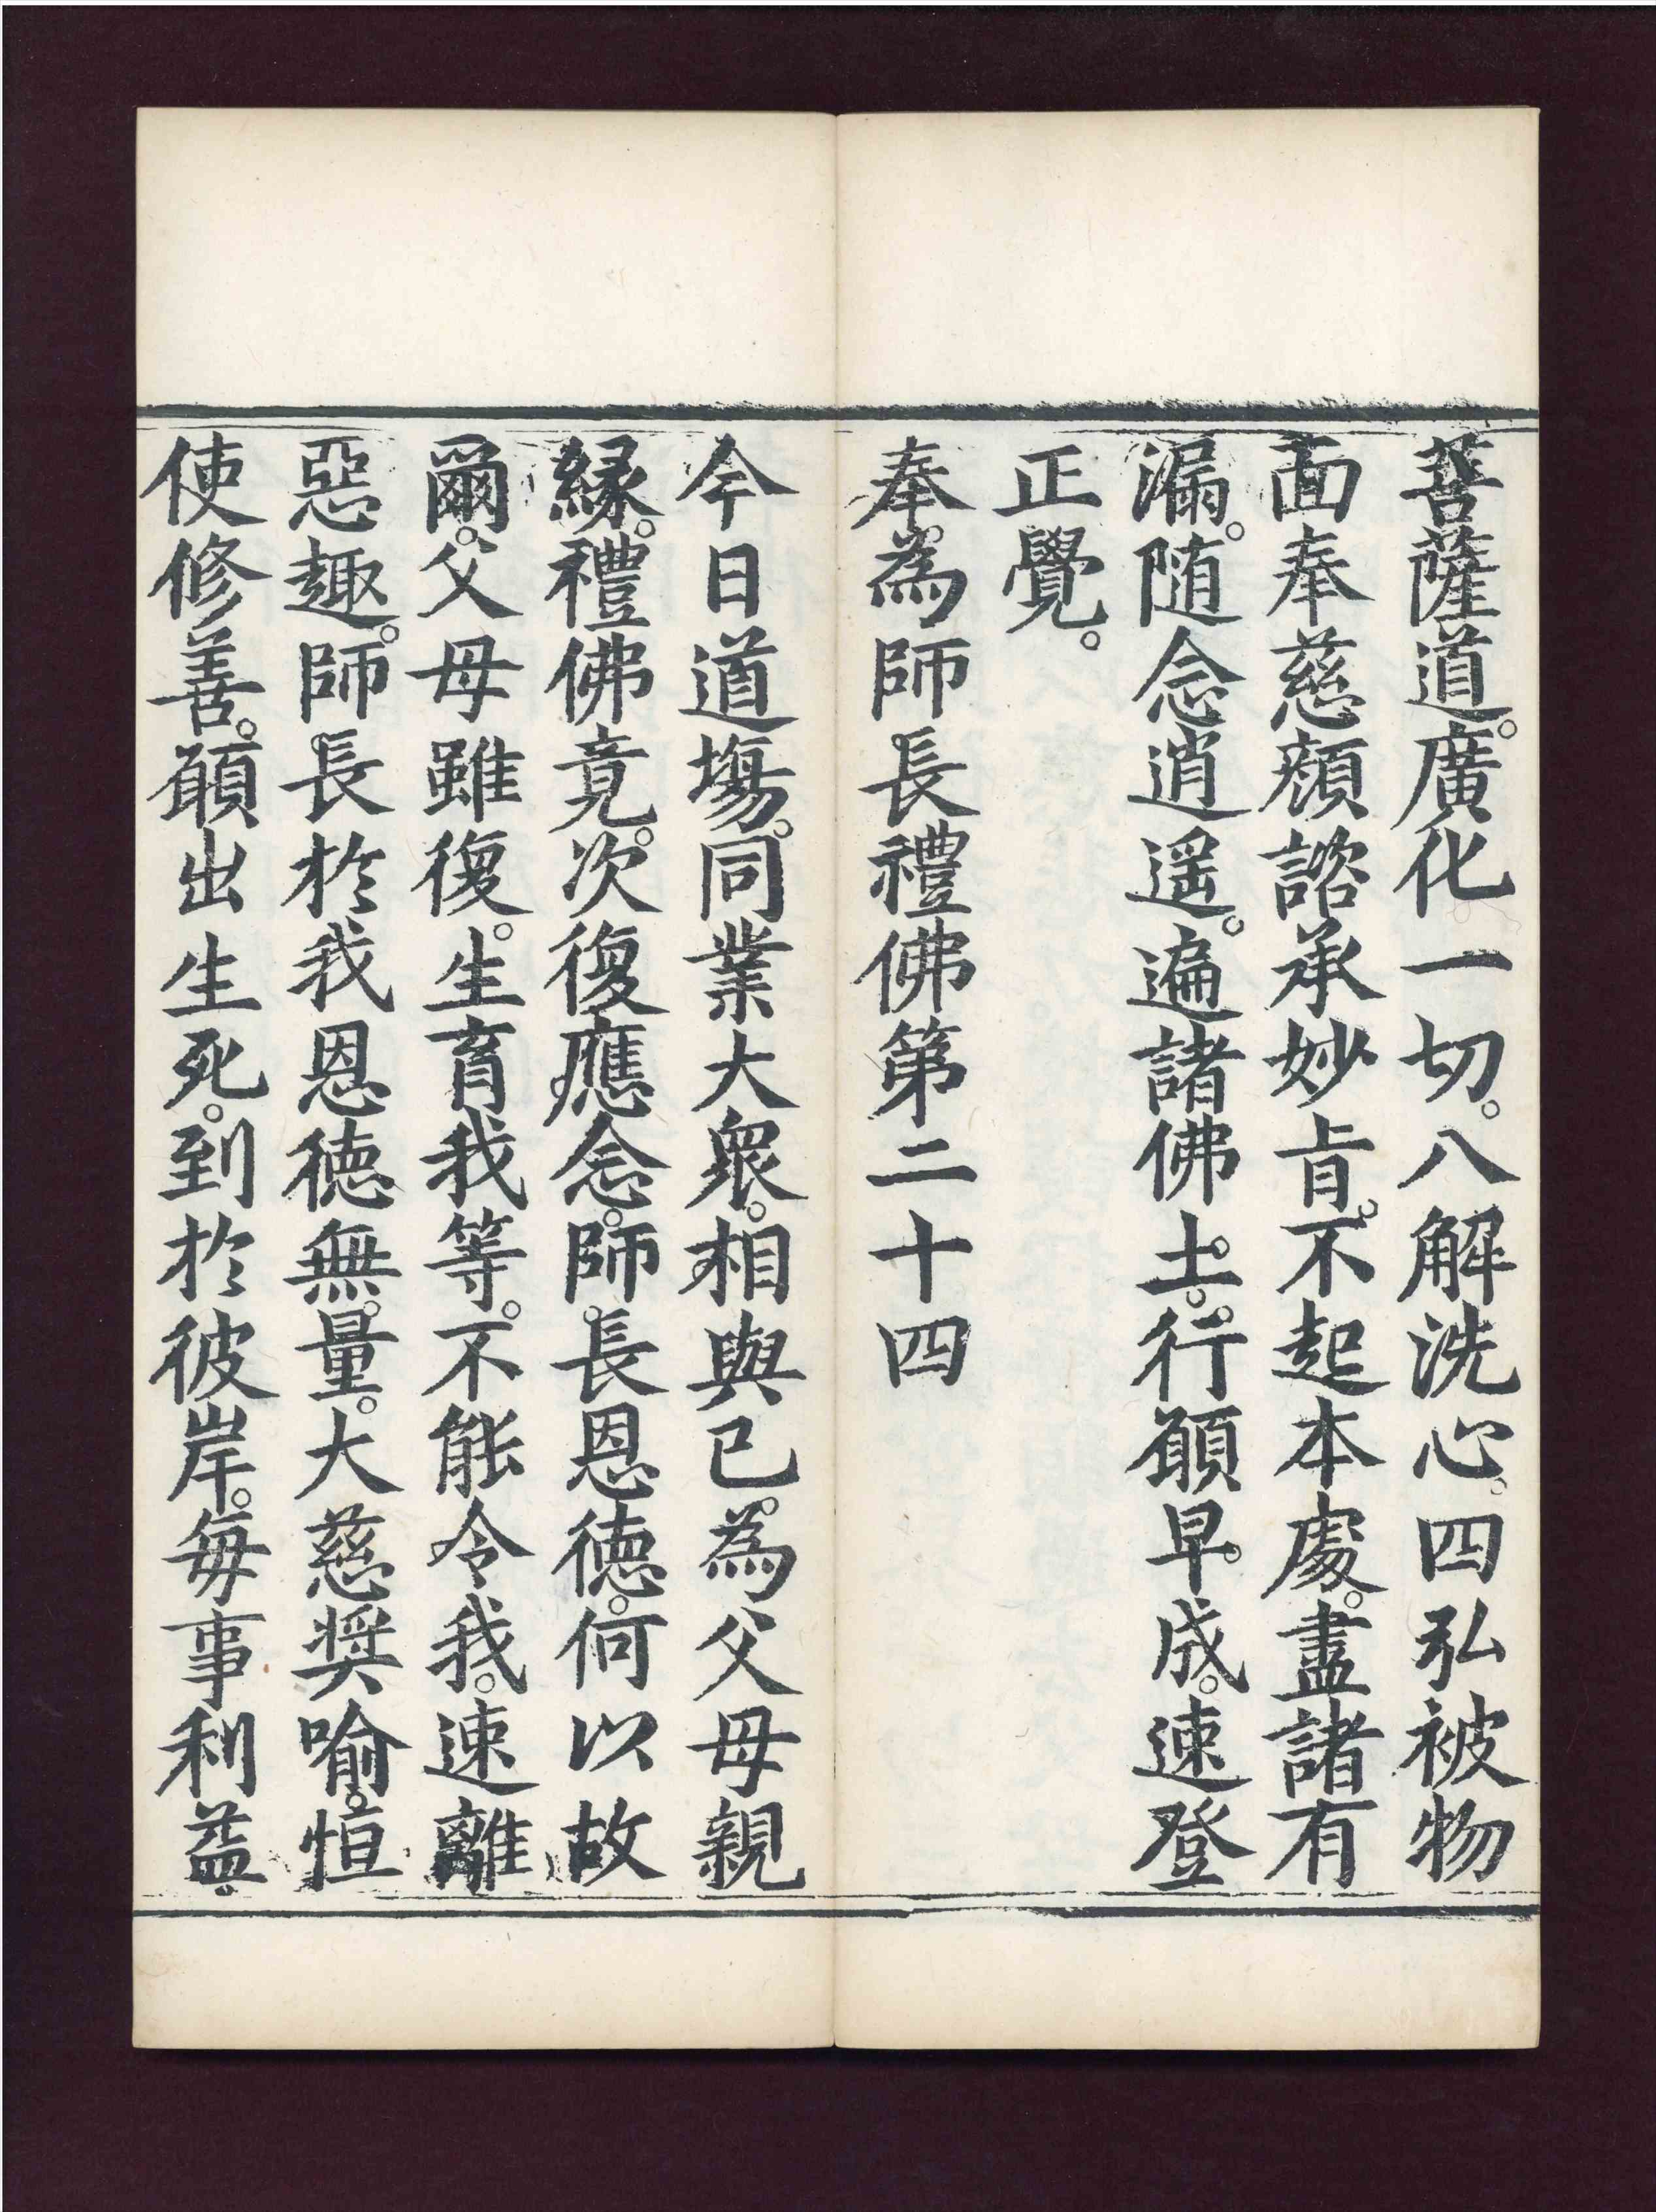 菩薩道。廣化一切。八解洗心。四弘被物
面奉慈顏諮承妙旨。不起本處。盡諸有
漏。随念逍遥。遍諸佛土。行願早成。速登
正覺。
奉。為師長禮佛第二十四
今日道塲。同業大衆。相與已。為父母親
緣。禮佛竟。次復應念。師。長恩德。何以故
爾。父母雖復。生育我等。不能令我。速離
惡趣。師長於我恩德無。量。大慈奨喻。恒
使修善。願出生死。到於彼岸。每事利益。